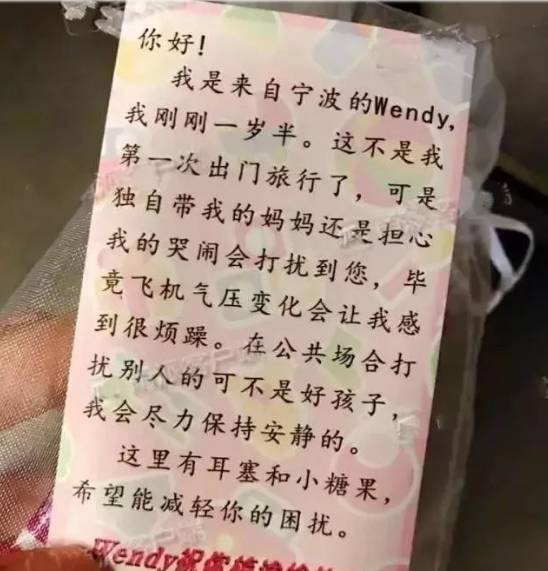 你好!
我是来自宁波的Wendy,
我刚刚一岁半。这不是我
第一次出门旅行了，可是
独自带我的妈妈还是担心
我的哭闹会打扰到您，毕
竟飞机气压变化会让我感
到很烦躁。在公共场合打
扰别人的可不是好孩子，
我会尽力保持安静的。
这里有耳塞和小糖果，
希望能减轻你的困扰。
Wendy祝你